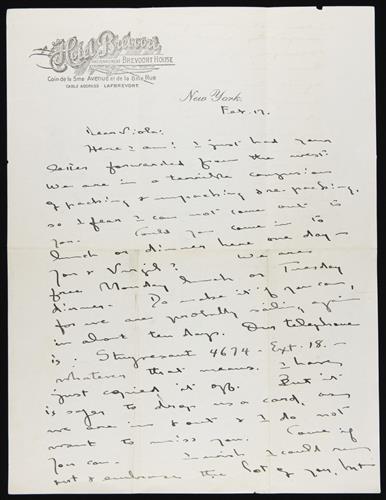 Hotel Brevort
BREVOORT HOUSE
Coin de la 5me Avenue et de la 8me Rue
CABLE ADDRESS LAFBREVORT
New York.
Feb. 17.
Dear Viola:
Here I am! I just had your
letter forwarded from the west.
We are in a terrible confusion
of packing & unpacking & re-packing.
so I fear I can not come out to
you. Could you come in to
lunch or dinner here one day —
you & Virgil? We are
free Monday lunch or Tuesday
dinner. Do make it if you can,
for we are probably sailing again
in about ten days. Our telephone
is: Stuyvesant 4674 - Ext. 18. —
whatever that means. I have
just copied it off. But it
is safer to drop us a card, as
we are in & out & I do not
want to miss you. Come if
you can. I wish I could run
out & embrace the lot of you, but